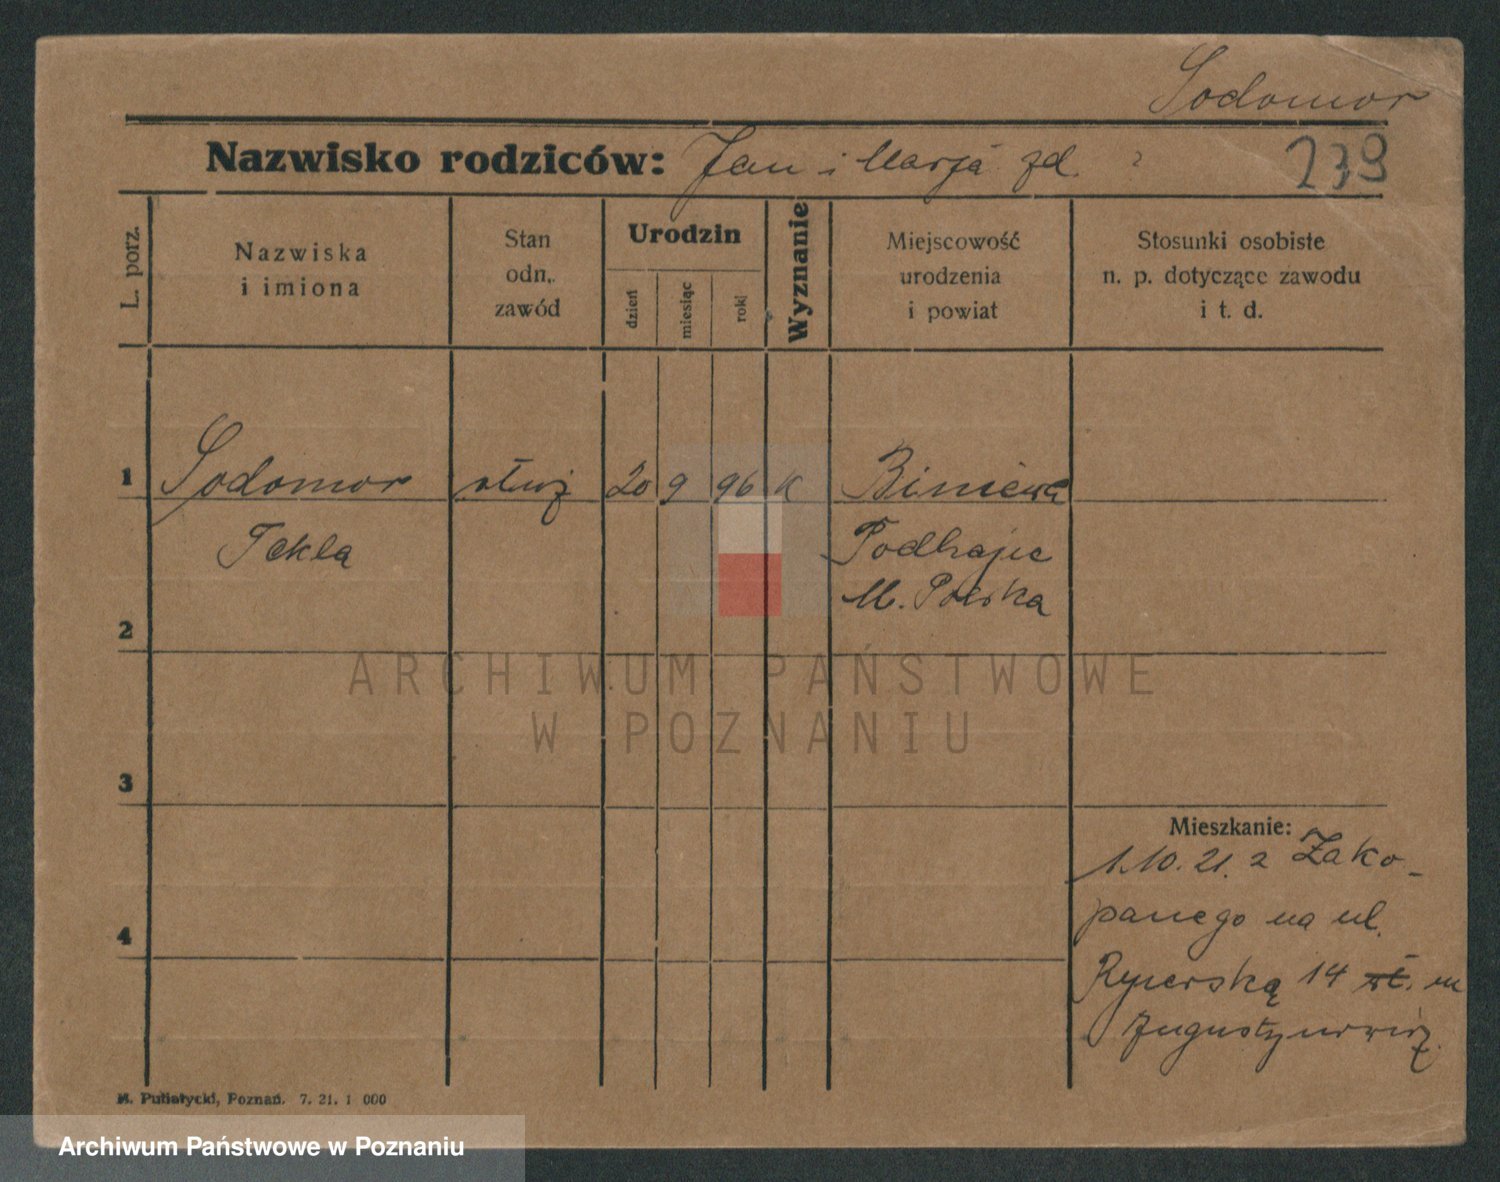 Sodomor
Nazwisko rodziców: Jan i Marja zd. ?
139
L. porz.
Nazwiska
i imiona
Stan
odn.
zawód
Urodzin
dzień
miesiąc
rok
Wyznanie
Miejscowość
urodzenia
i powiat
Stosunki osobiste
n. p. dotyczące zawodu
i t. d.
1 Sodomor służ 20 9 96 K Biniewa
Tekla Podhajce
M. Polska
2
ARCHIWUM PAŃSTWOWE
W POZNANIU
3
Mieszkanie:
1.10.21. z Zako-
panego na ul.
4
Rycerską 14 wł. m
Augustynowicz.
M. Putiatycki, Poznań. 7. 21. 1 000
Archiwum Państwowe w Poznaniu